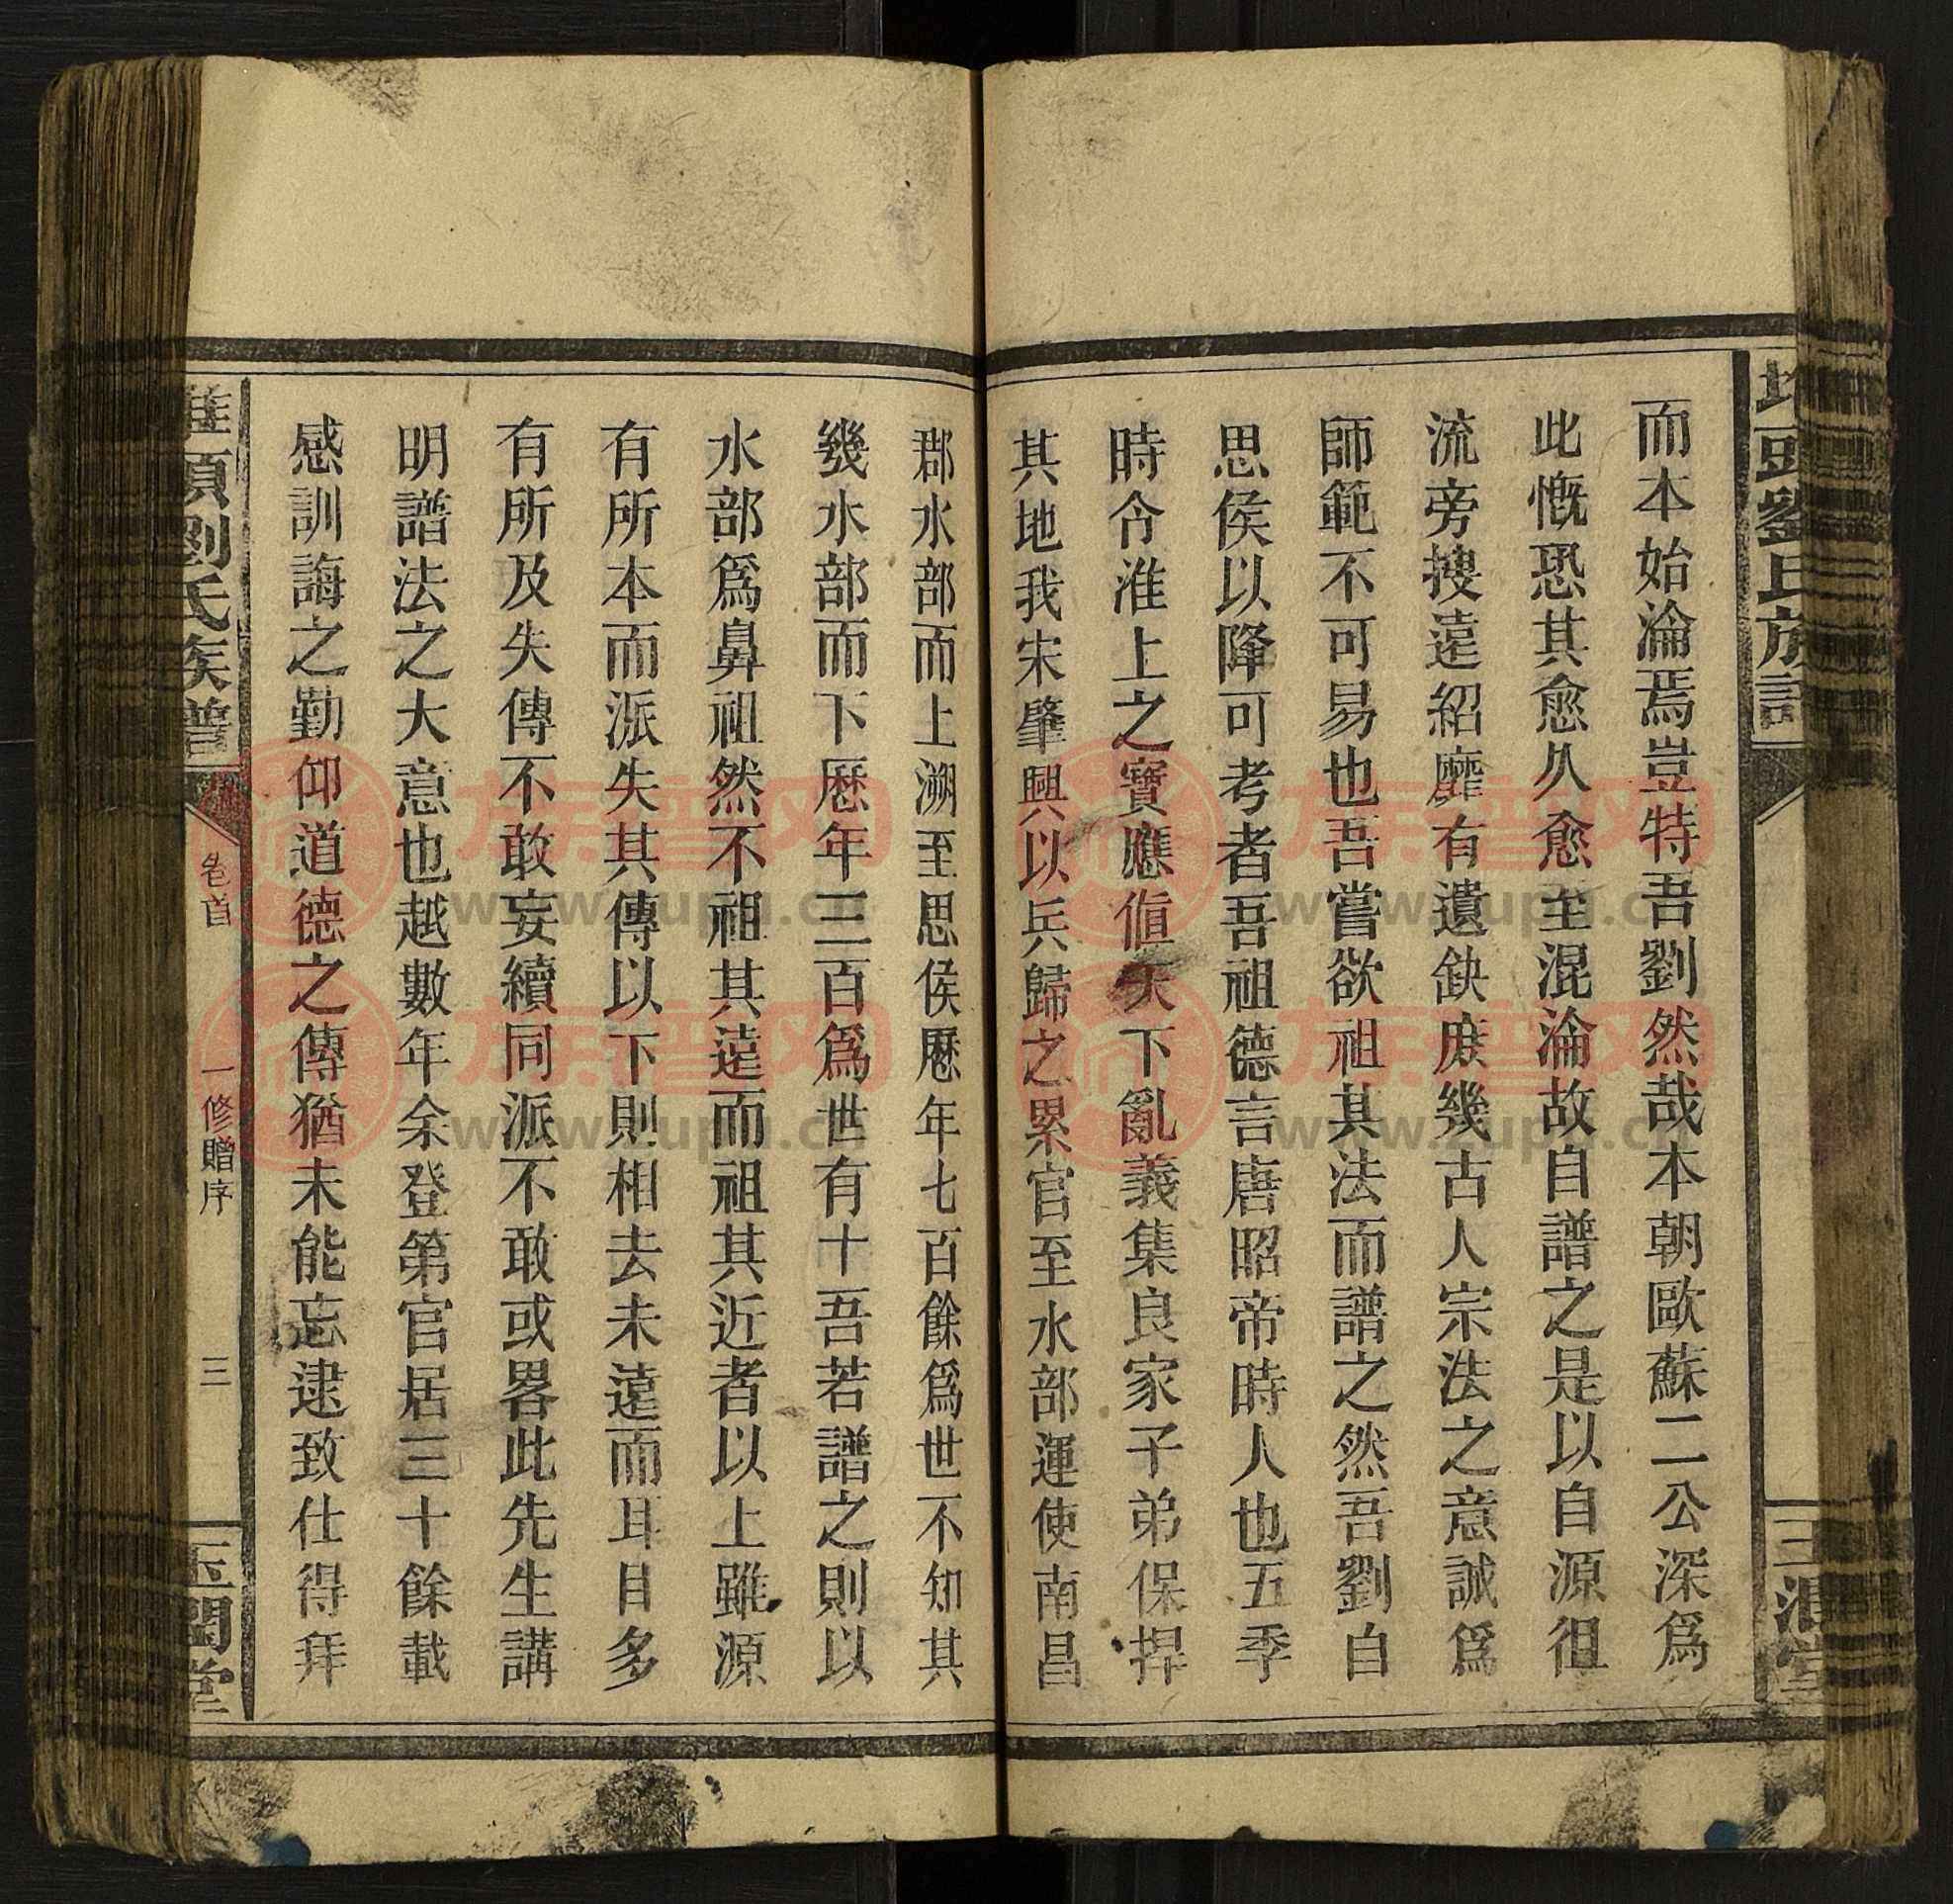 而本始淪焉豈特吾劉然哉本朝歐蘇二公深爲
此慨恐其愈乆愈至混淪故自譜之是以自源徂
流旁搜遠紹靡有遺鈌庻幾古人宗法之意誠爲
師範不可易也吾嘗欲祖其法而譜之然吾劉自
思侯以降可考者吾祖德言唐昭帝時人也五季
時令淮上之寶應值天下亂義集良家子弟保捍
其地我宋肇興以兵歸之累官至水部運使南昌
郡水部而上溯至思侯歷年七百餘爲世不知其
幾水部而下歷年三百爲世有十吾若譜之則以
水部爲鼻祖然不祖其遠而祖其近者以上雖源
有所本而派失其傳以下則相去未遠而耳目多
有所及失傳不敢妄續同派不敢或畧此先生講
明譜法之大意也越數年余登第官居三十餘載
感訓誨之勤仰道德之傳猶未能忘逮致仕得拜
劉氏族譜
卷首
一修贈序
三
族譜网
www.zupu.cn